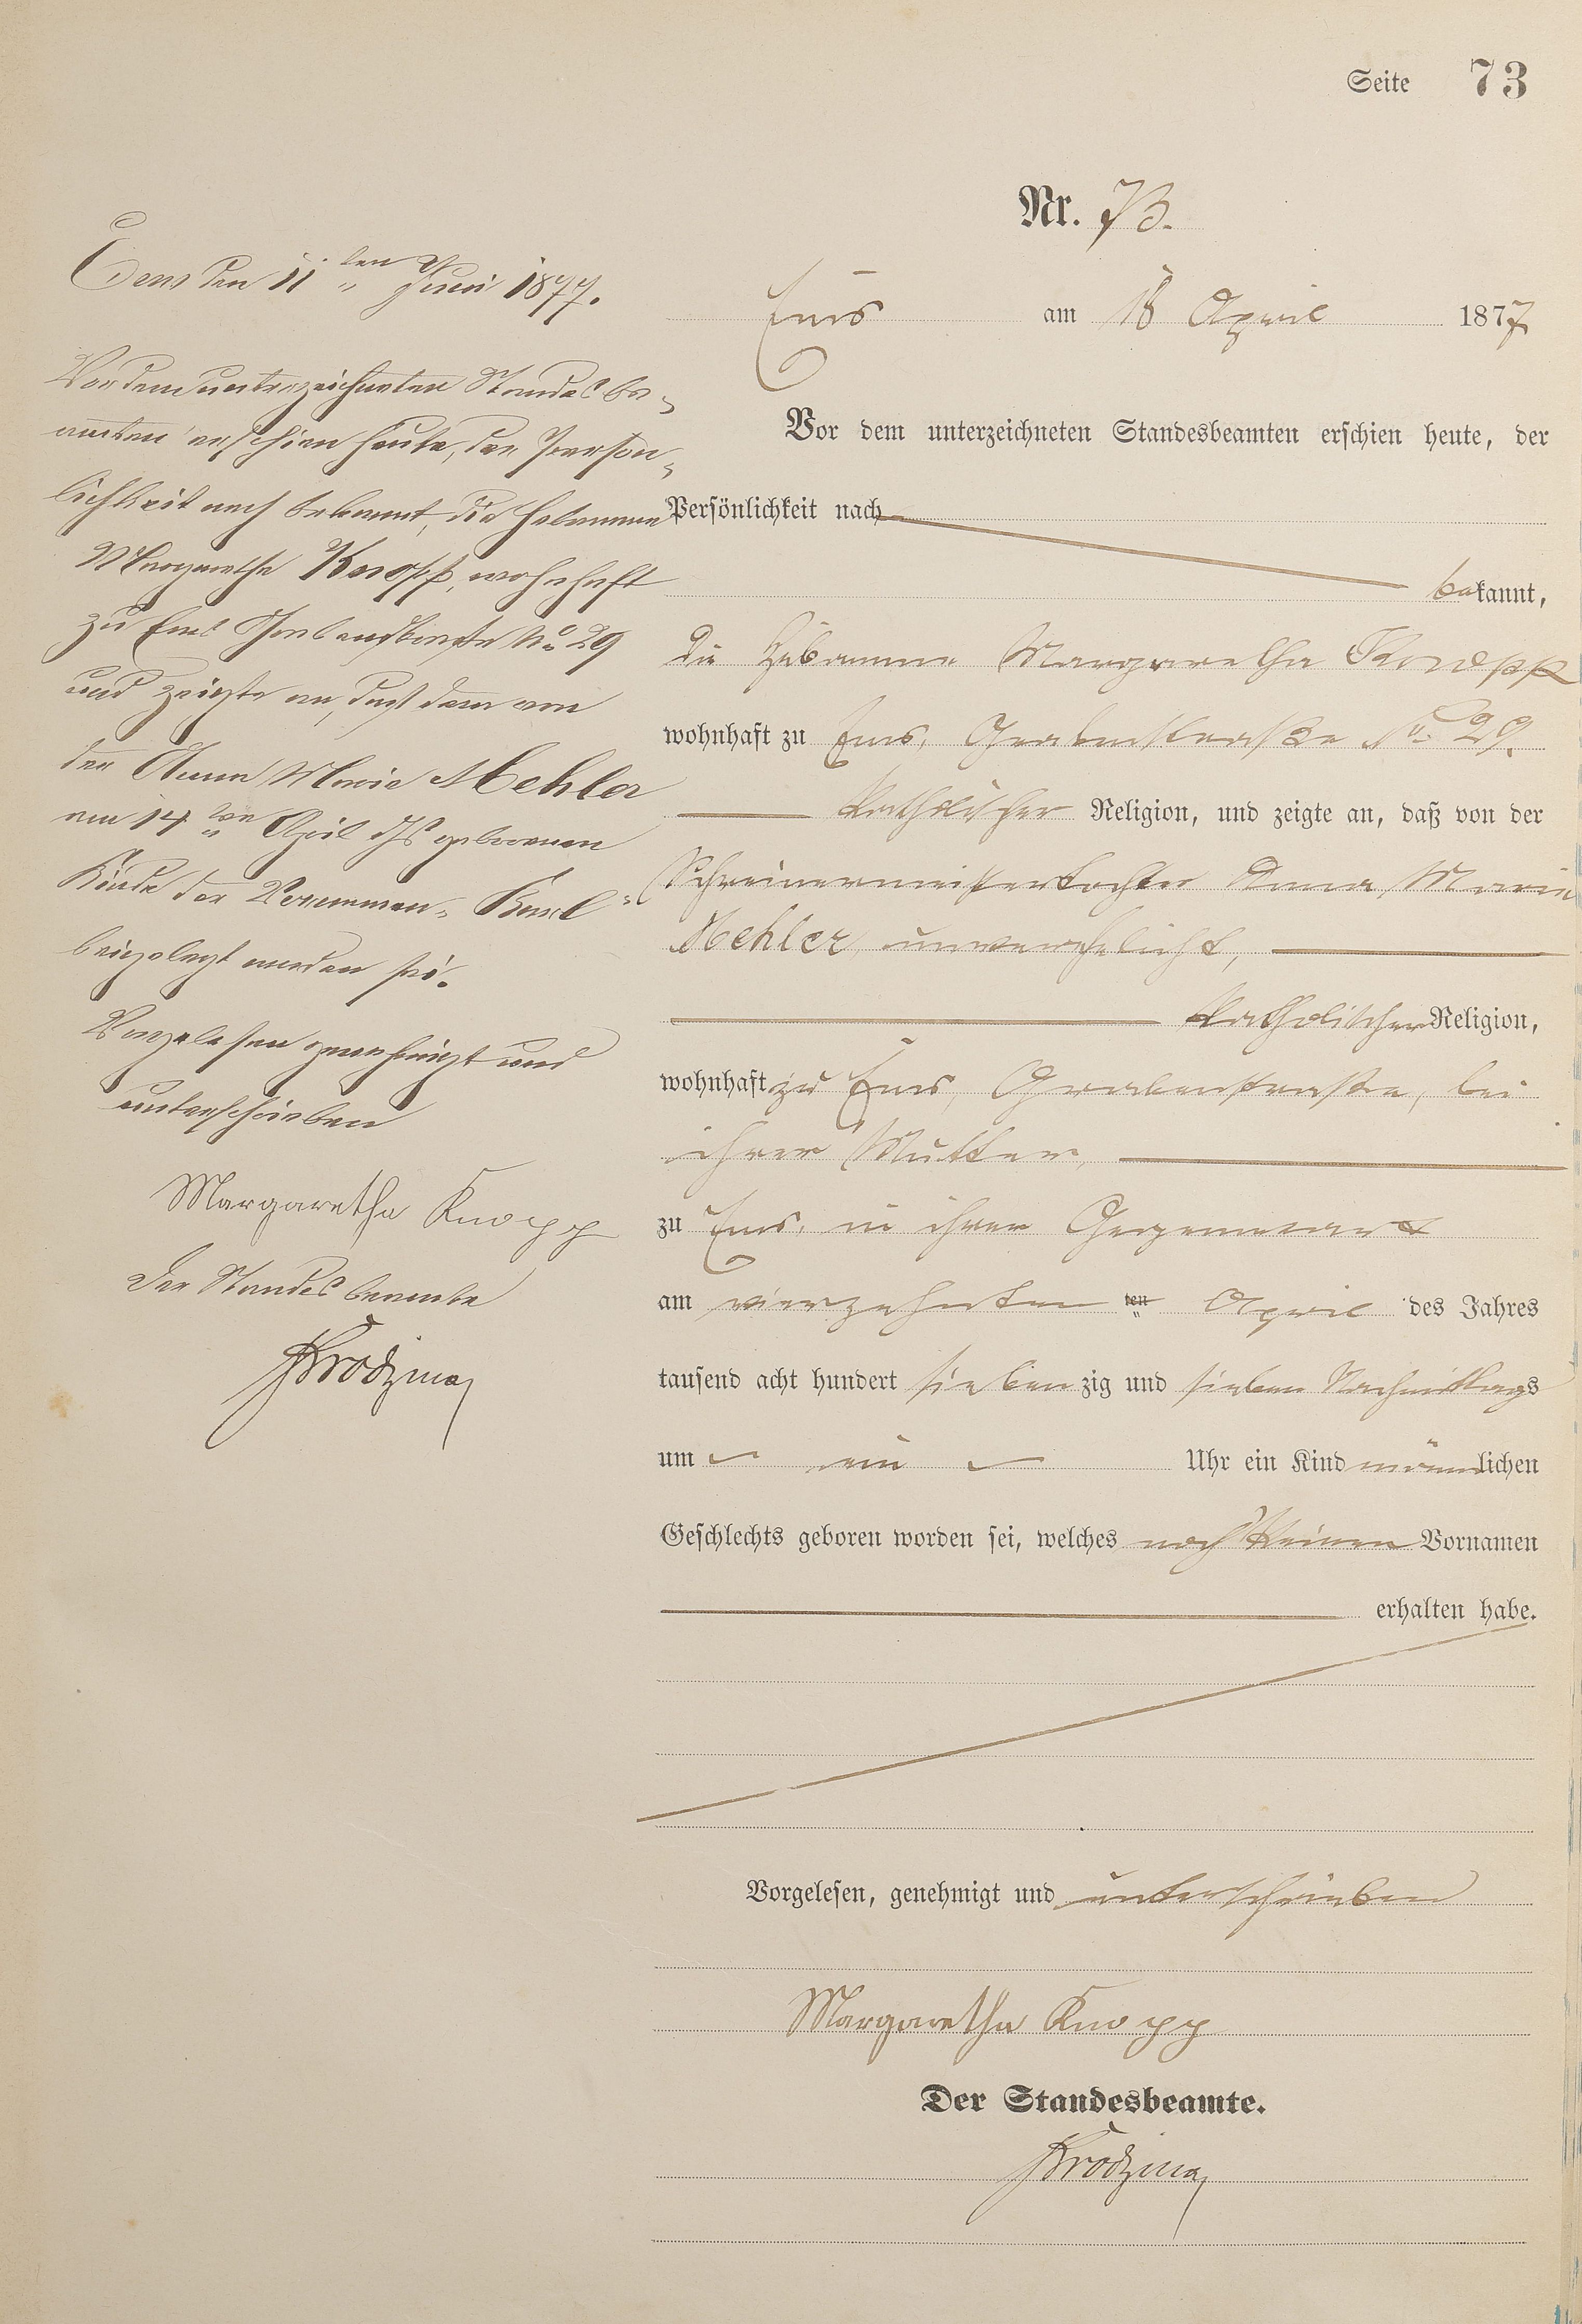 Seite 73
Nr. 73.
Ems am 18 April 1877
Vor dem unterzeichneten Standesbeamten erschien heute, der
Persönlichkeit nach
bekannt,
die Hebamme Margaretha Knopp
wohnhaft zu Ems, Grabenstraße No 29.
katholischer Religion, und zeigte an, daß von der
Schreinermeisterstochter Anna Marie
Mehler, unverehelicht,
katholischer Religion,
wohnhaft zu Ems, Grabenstraße, bei
ihrer Mutter,
zu Ems, in ihrer Gegenwart
am vierzehnten ten April des Jahres
tausend acht hundert siebenzig und sieben Nachmittags
um ein Uhr ein Kind männlichen
Geschlechts geboren worden sei, welches noch keinen Vornamen
erhalten habe.
Vorgelesen, genehmigt und unterschrieben
Margaretha Knopp
Der Standesbeamte.
Ems den 11ten Juni 1877.
Vor dem unterzeichneten Standesbe-
amten erschien heute, der Person-
lichkeit nach bekannt, die Hebamme
Margaretha Knopp, wohnhaft
zu Ems Grabenstraße No 29
und zeigte an, daß dem von
der Anna Marie Mehler
am 14ten April ds geborenen
Kinde der Vornamen "Karl"
beigelegt worden sei.
Vorgelesen genehmigt und
unterschrieben
Margaretha Knopp
Der Standesbeamte